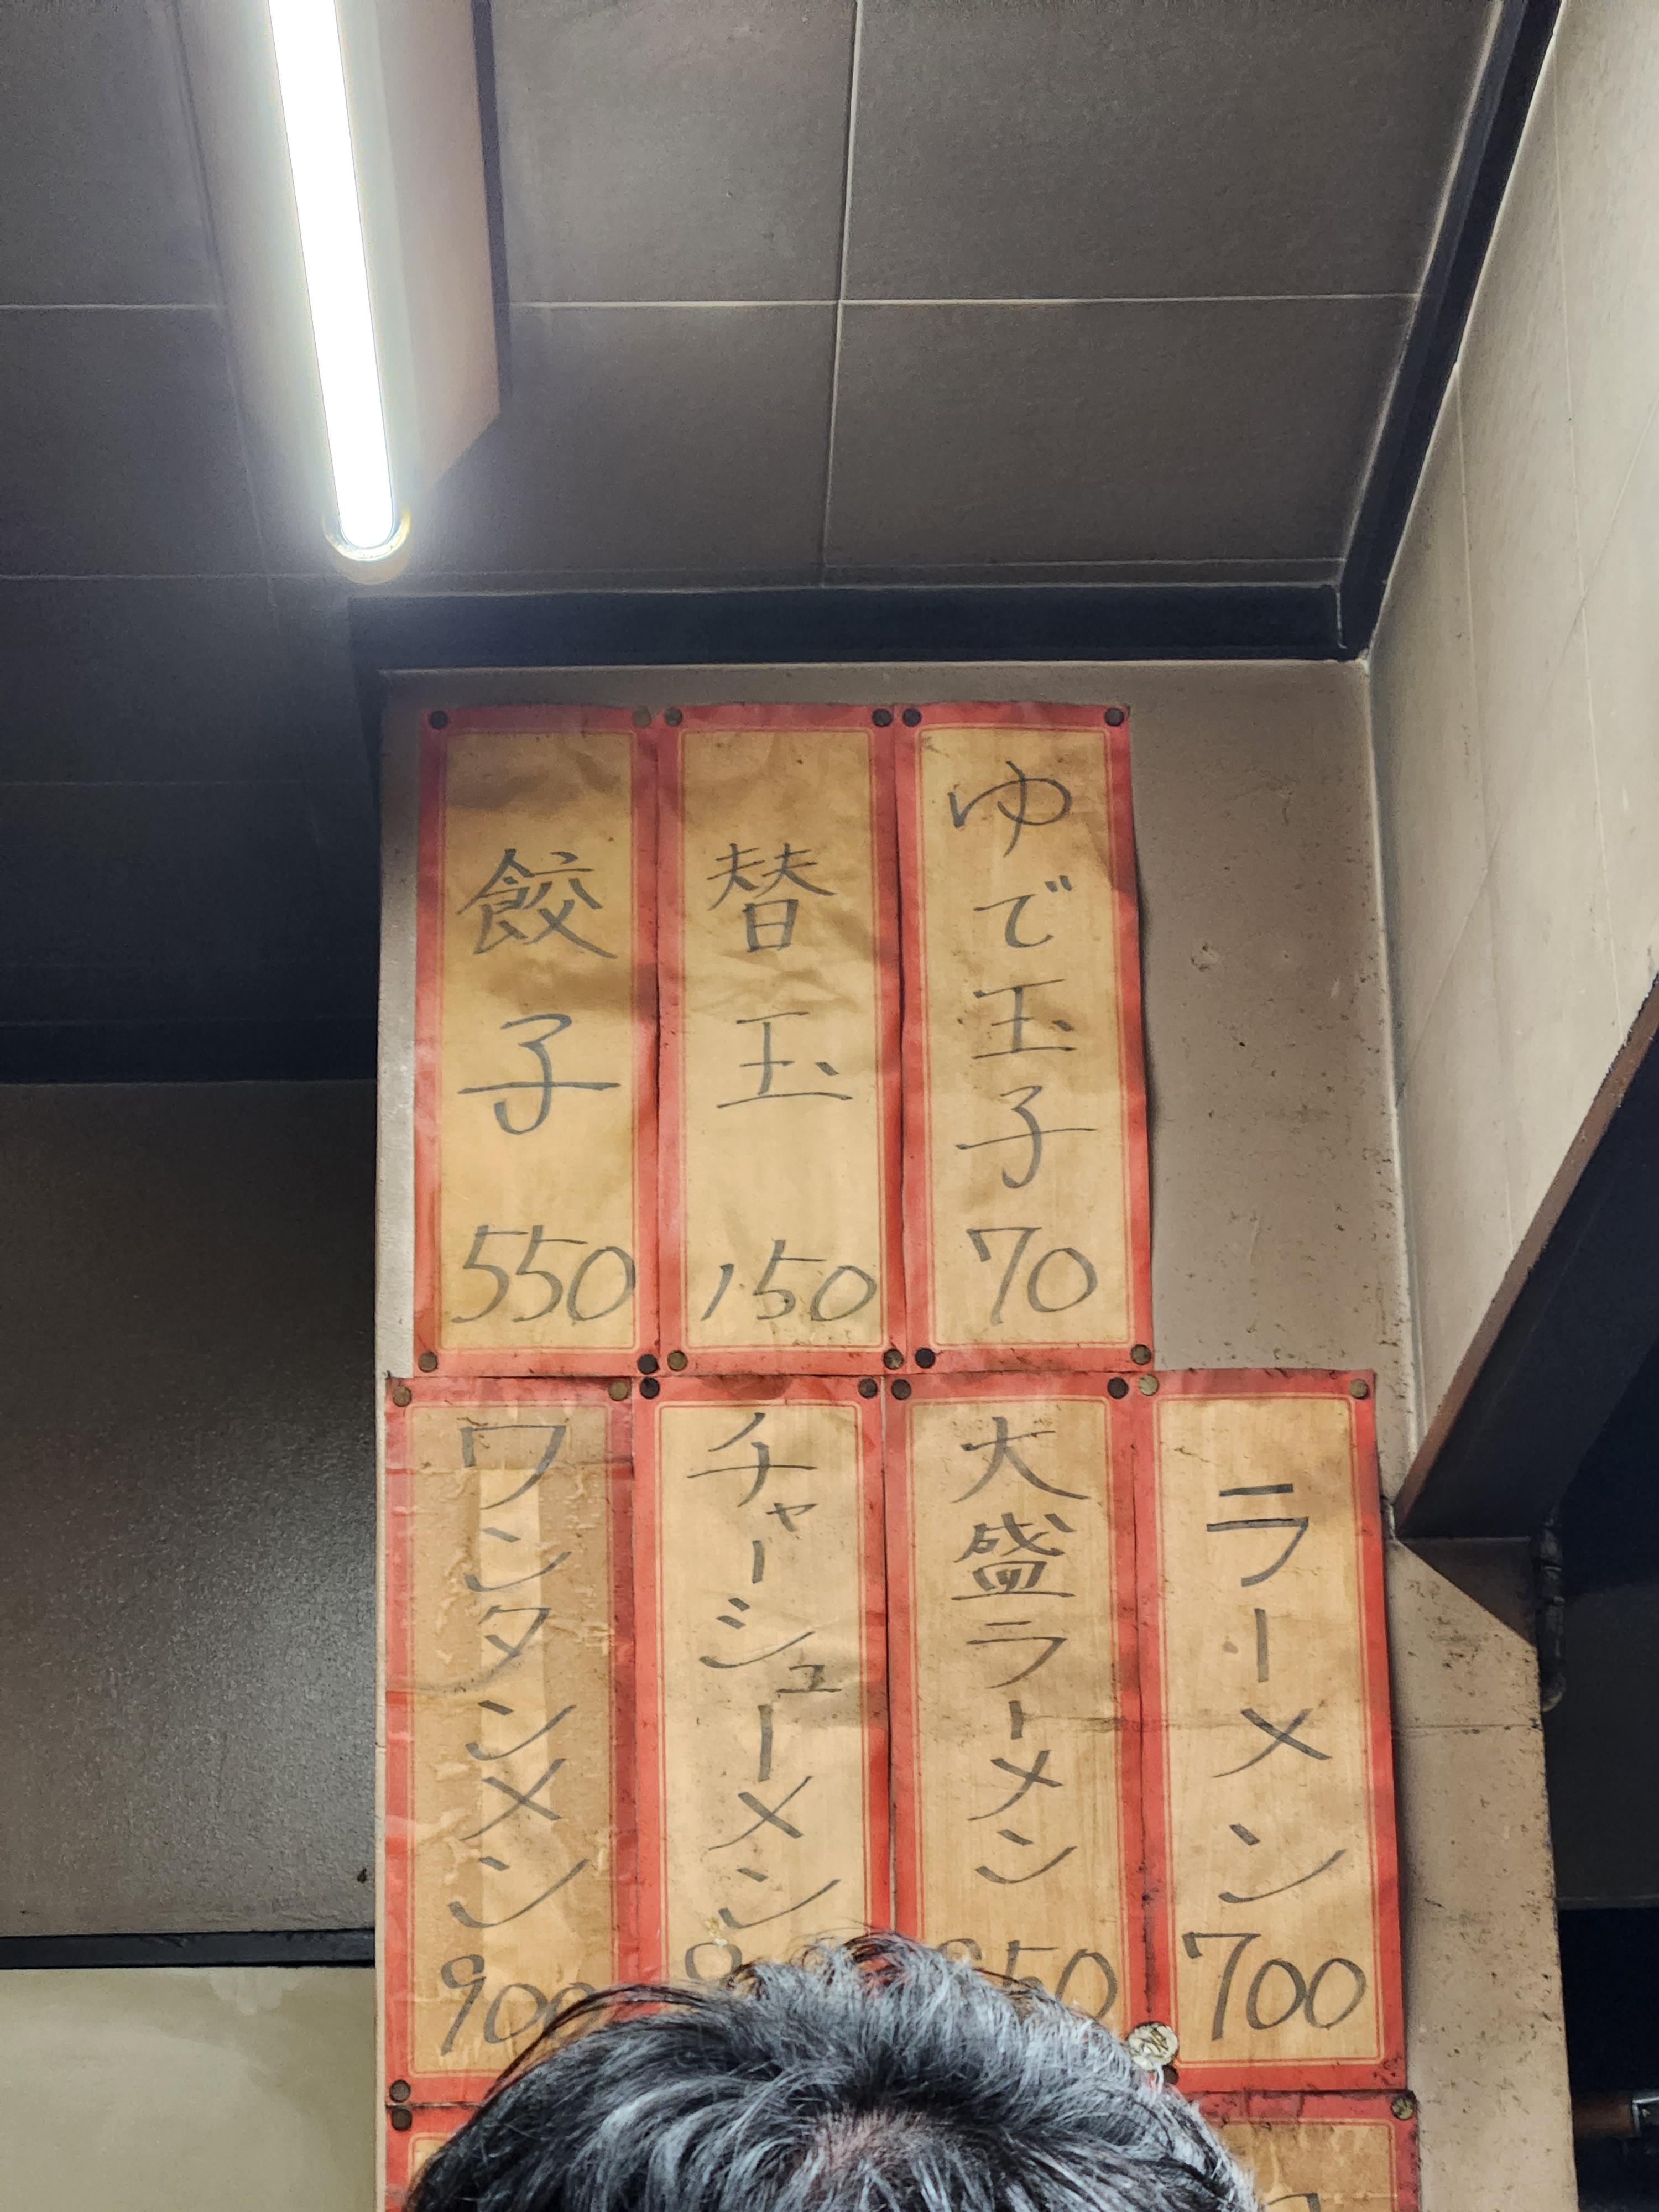 ゆで玉子 70
替玉 150
餃子 550
ラーメン 700
大盛ラーメン
チャーシューメン
ワンタンメン 900